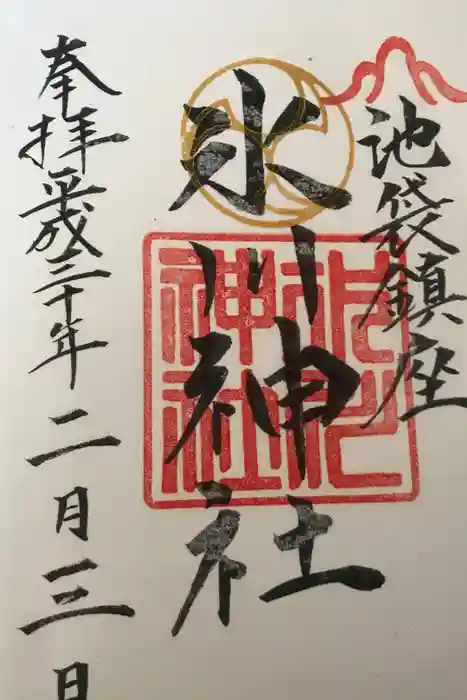 池袋鎮座
氷川神社
奉拝平成三十年二月三日
氷川
神社